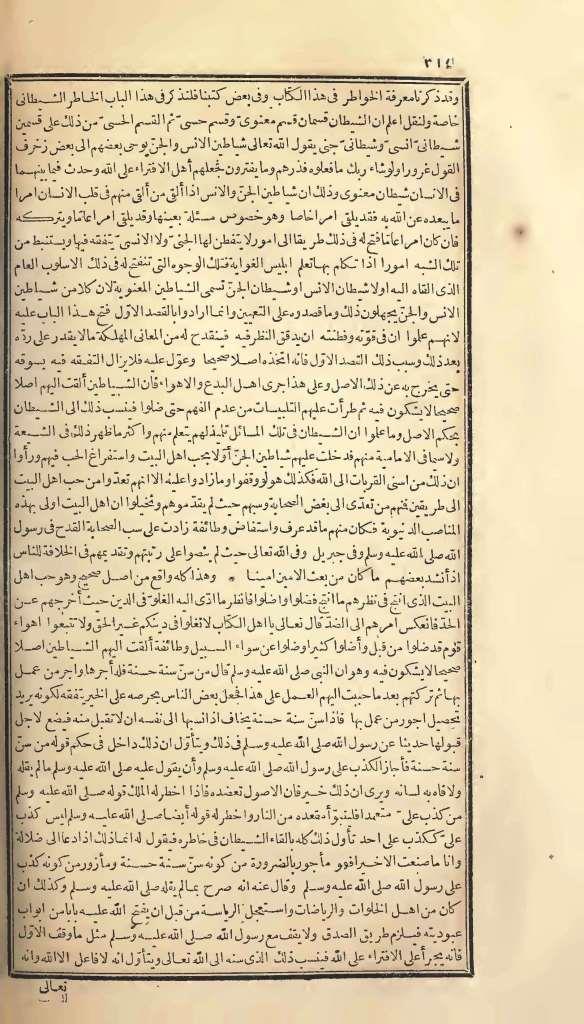 ٣١٤
وقد ذكرنا معرفة الخواطر فى هذا الكتاب وفى بعض كتبنا فلنذكر فى هذا الباب الخاطر الشيطانى
خاصة ولنقل اعلم ان الشيطان قسمان قسم معنوى وقسم حسى ثم القسم الحسى من ذلك على قسمين
شيطانى انسى وشيطانى جنى يقول الله تعالى شياطين الانس والجن يوحى بعضهم الى بعض زخرف
القول غرورا ولو شاء ربك ما فعلوه فذرهم وما يفترون فجعلهم أهل الافتراء على الله وحدث فيما بينهما
فى الانسان شيطان معنوى وذلك ان شياطين الجن والانس اذا ألقى من ألقى منهم فى قلب الانسان امرا
ما يبعده عن الله به فقد يلقى امرا خاصا وهو خصوص مسئلة بعينها وقد يلقى امرا عاما ويتركه
فان كان امرا عاما فتح له فى ذلك طريقا الى امور لا يتفطن لها الجنى ولا الانسى يتفقه فيها ويستنبط من
تلك الشبه امورا اذا تكلم بها تعلم ابليس الغواية فتلك الوجوه التى تنفتح له فى ذلك الاسلوب العام
الذى القاه اليه اولا شيطان الانس او شيطان الجن تسمى الشياطين المعنوية لان كلا من شياطين
الانس والجن يجهلون ذلك وما قصدوه على التعيين وانما ارادوا بالقصد الاول فتح هذا الباب عليه
لانهم علموا ان فى قوته وفطنته ان يدقق النظر فيه فينقدح له من المعانى المهلكة ما لا يقدر على ردّه
بعد ذلك وسبب ذلك القصد الاول فانه اتخذه اصلا صحيحا وعول عليه فلا يزال التفقه فيه يسوقه
حتى يخرج به عن ذلك الاصل وعلى هذا جرى اهل البدع والاهواء فان الشياطين ألقت اليهم اصلا
صحيحا لا يشكون فيه ثم طرأت عليهم التلبيسات من عدم الفهم حتى ضلوا فينسب ذلك الى الشيطان
بحكم الاصل وما علموا ان الشيطان فى تلك المسائل تليذ لهم يتعلم منهم واكثر ما ظهر ذلك فى الشيعة
ولا سيما فى الامامية منهم فدخلت عليهم شياطين الجن أولا بحب اهل البيت واستفراغ الحب فيهم ورأوا
ان ذلك من اسنى القربات الى الله فكذلك هو لو وقفوا وما زادوا عليه الا انهم تعدوا من حب اهل البيت
الى طريقين فمنهم من تعدى الى بغض الصحابة وسبهم حيث لم يقدموهم وتخيلوا ان اهل البيت اولى بهذه
المناصب الدنيوية فكان منهم ما قد عرف واستفاض وطائفة زادت على سب الصحابة القدح فى رسول
الله صلى الله عليه وسلم وفى جبريل وفى الله تعالى حيث لم ينصوا على رتبتهم وتقديمهم فى الخلافة للناس
اذ أنشد بعضهم ما كان من بعث الامين امينا * وهذا كله واقع من اصل صحيح وهو حب اهل
البيت الذى انتج فى نظرهم ما انتج فضلوا واضلوا فانظر ما ادى اليه الغلو فى الدين حيث أخرجهم عن
الحد فانعكس امرهم الى الضد قال تعالى يا اهل الكتاب لا تغلوا فى دينكم غير الحق ولا تتبعوا اهواء
قوم قد ضلوا من قبل وأضلوا كثيرا وضلوا عن سواء السبيل وطائفة ألقت اليهم الشياطين اصلا
صحيحا لا يشكون فيه وهو ان النبى صلى الله عليه وسلم قال من سن سنة حسنة فله أجرها واجر من عمل
بها ثم تركتهم بعد ما حببت اليهم العمل على هذا فجعل بعض الناس بحرصه على الخير يتفقه لكونه يريد
تحصيل اجور من عمل بها فاذا سن سنة حسنة يخاف اذا نسبها الى نفسه ان لا تقبل منه فيضع لاجل
قبولها حديثا عن رسول الله صلى الله عليه وسلم فى ذلك ويتأول ان ذلك داخل فى حكم قوله من سن
سنة حسنة فأجاز الكذب على رسول الله صلى الله عليه وسلم وأن يقول عليه صلى الله عليه وسلم ما لم يقله
ولا فاه به لسانه ويرى ان ذلك خير فان الاصول تعضده فاذا اخطر له الملك قوله صلى الله عليه وسلم
من كذب على متعمدا فليتبوّأ مقعده من النار واخطر له قوله أيضا صلى الله عليه وسلم ليس كذب
على ككذب على احد تأول ذلك كله بالقاء الشيطان فى خاطره فيقول له انما ذلك اذا دعا الى ضلالة
وانا ما صنعت الا خيرا فهو مأجور بالضرورة من كونه سن سنة حسنة ومأزور من كونه كذب
على رسول الله صلى الله عليه وسلم وقال عنه انه صرح بما لم يقله صلى الله عليه وسلم وكذلك ان
كان من اهل الخلوات والرياضات واستعجل الرياسة من قبل ان يفتح الله عليه بابا من ابواب
عبوديته فيلزم طريق الصدق ولا يقف مع رسول الله صلى الله عليه وسلم مثل ما وقف الاول
فانه يجرأ على الافتراء على الله فينسب ذلك الذى سنه الى الله تعالى ويتأول انه لا فاعل الا الله وانه
تعالى